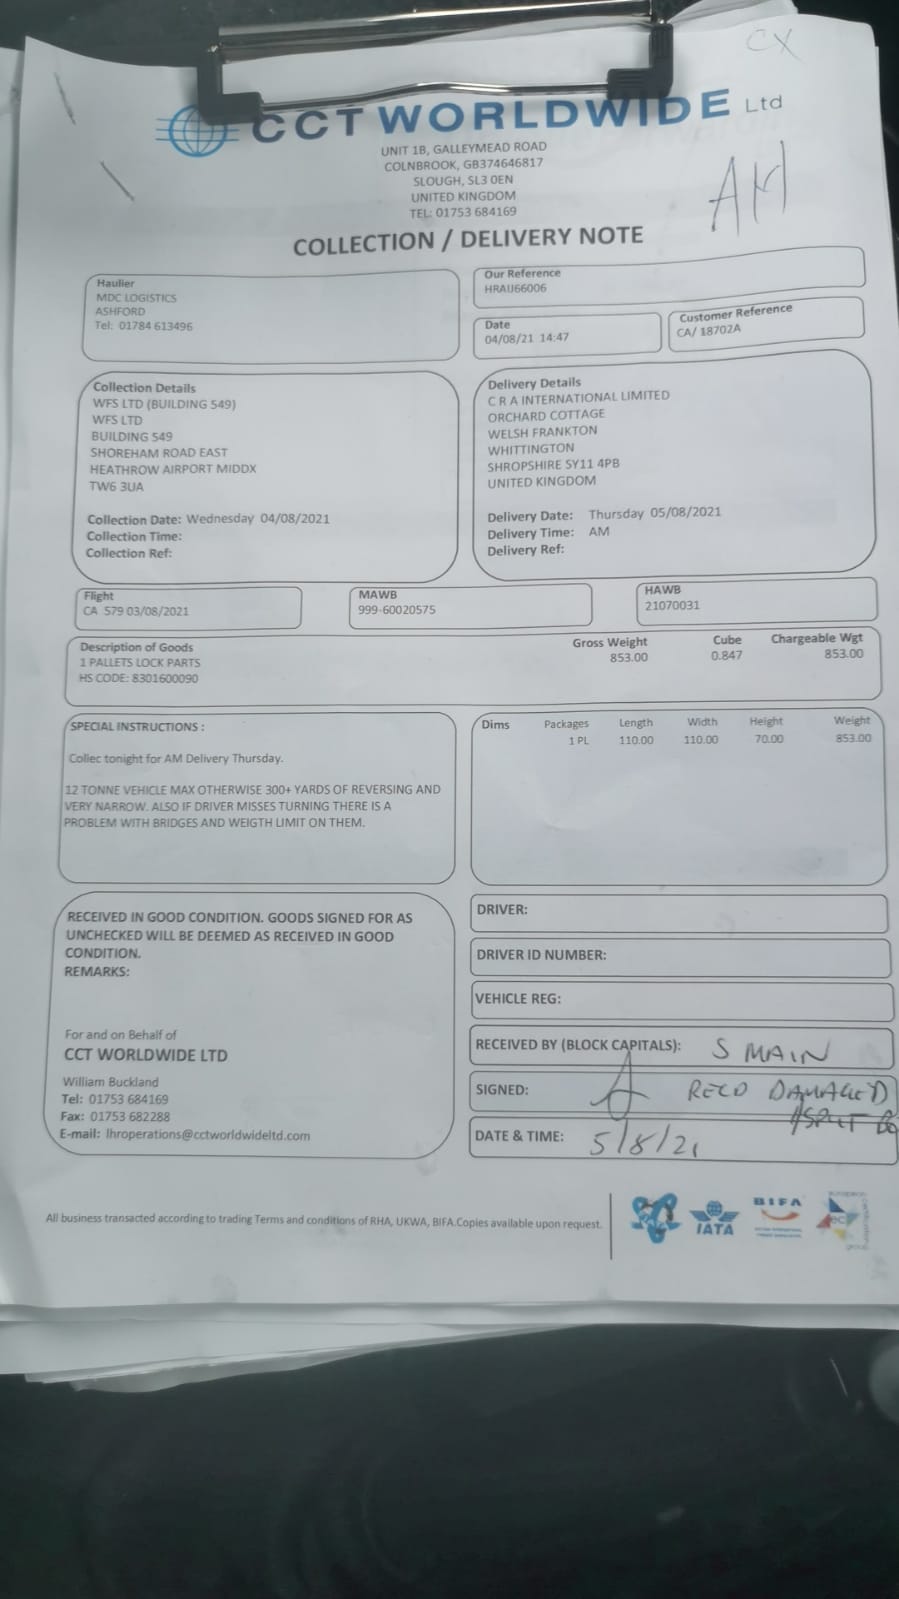 CX
CCT WORLDWIDE Ltd
UNIT 1B, GALLEYMEAD ROAD
COLNBROOK, GB374646817
SLOUGH, SL3 0EN
UNITED KINGDOM
TEL: 01753 684169
AM
COLLECTION / DELIVERY NOTE
Haulier
MDC LOGISTICS
ASHFORD
Tel: 01784 613496
Our Reference
HRAU66006
Date
04/08/21 14:47
Customer Reference
CA/ 18702A
Collection Details
WFS LTD (BUILDING 549)
WFS LTD
BUILDING 549
SHOREHAM ROAD EAST
HEATHROW AIRPORT MIDDX
TW6 3UA
Collection Date: Wednesday 04/08/2021
Collection Time:
Collection Ref:
Delivery Details
C R A INTERNATIONAL LIMITED
ORCHARD COTTAGE
WELSH FRANKTON
WHITTINGTON
SHROPSHIRE SY11 4PB
UNITED KINGDOM
Delivery Date: Thursday 05/08/2021
Delivery Time: AM
Delivery Ref:
Flight
CA 579 03/08/2021
MAWB
999-60020575
HAWB
21070031
Description of Goods Gross Weight Cube Chargeable Wgt
1 PALLETS LOCK PARTS 853.00 0.847 853.00
HS CODE: 8301600090
SPECIAL INSTRUCTIONS :
Collec tonight for AM Delivery Thursday.
12 TONNE VEHICLE MAX OTHERWISE 300+ YARDS OF REVERSING AND
VERY NARROW. ALSO IF DRIVER MISSES TURNING THERE IS A
PROBLEM WITH BRIDGES AND WEIGTH LIMIT ON THEM.
Dims Packages Length Width Height Weight
1 PL 110.00 110.00 70.00 853.00
RECEIVED IN GOOD CONDITION. GOODS SIGNED FOR AS
UNCHECKED WILL BE DEEMED AS RECEIVED IN GOOD
CONDITION.
REMARKS:
For and on Behalf of
CCT WORLDWIDE LTD
William Buckland
Tel: 01753 684169
Fax: 01753 682288
E-mail: lhroperations@cctworldwideltd.com
DRIVER:
DRIVER ID NUMBER:
VEHICLE REG:
RECEIVED BY (BLOCK CAPITALS): S MAIN
SIGNED: RECD DAMAGED
/SPLIT
DATE & TIME: 5/8/21
All business transacted according to trading Terms and conditions of RHA, UKWA, BIFA.Copies available upon request.
IATA
BIFA